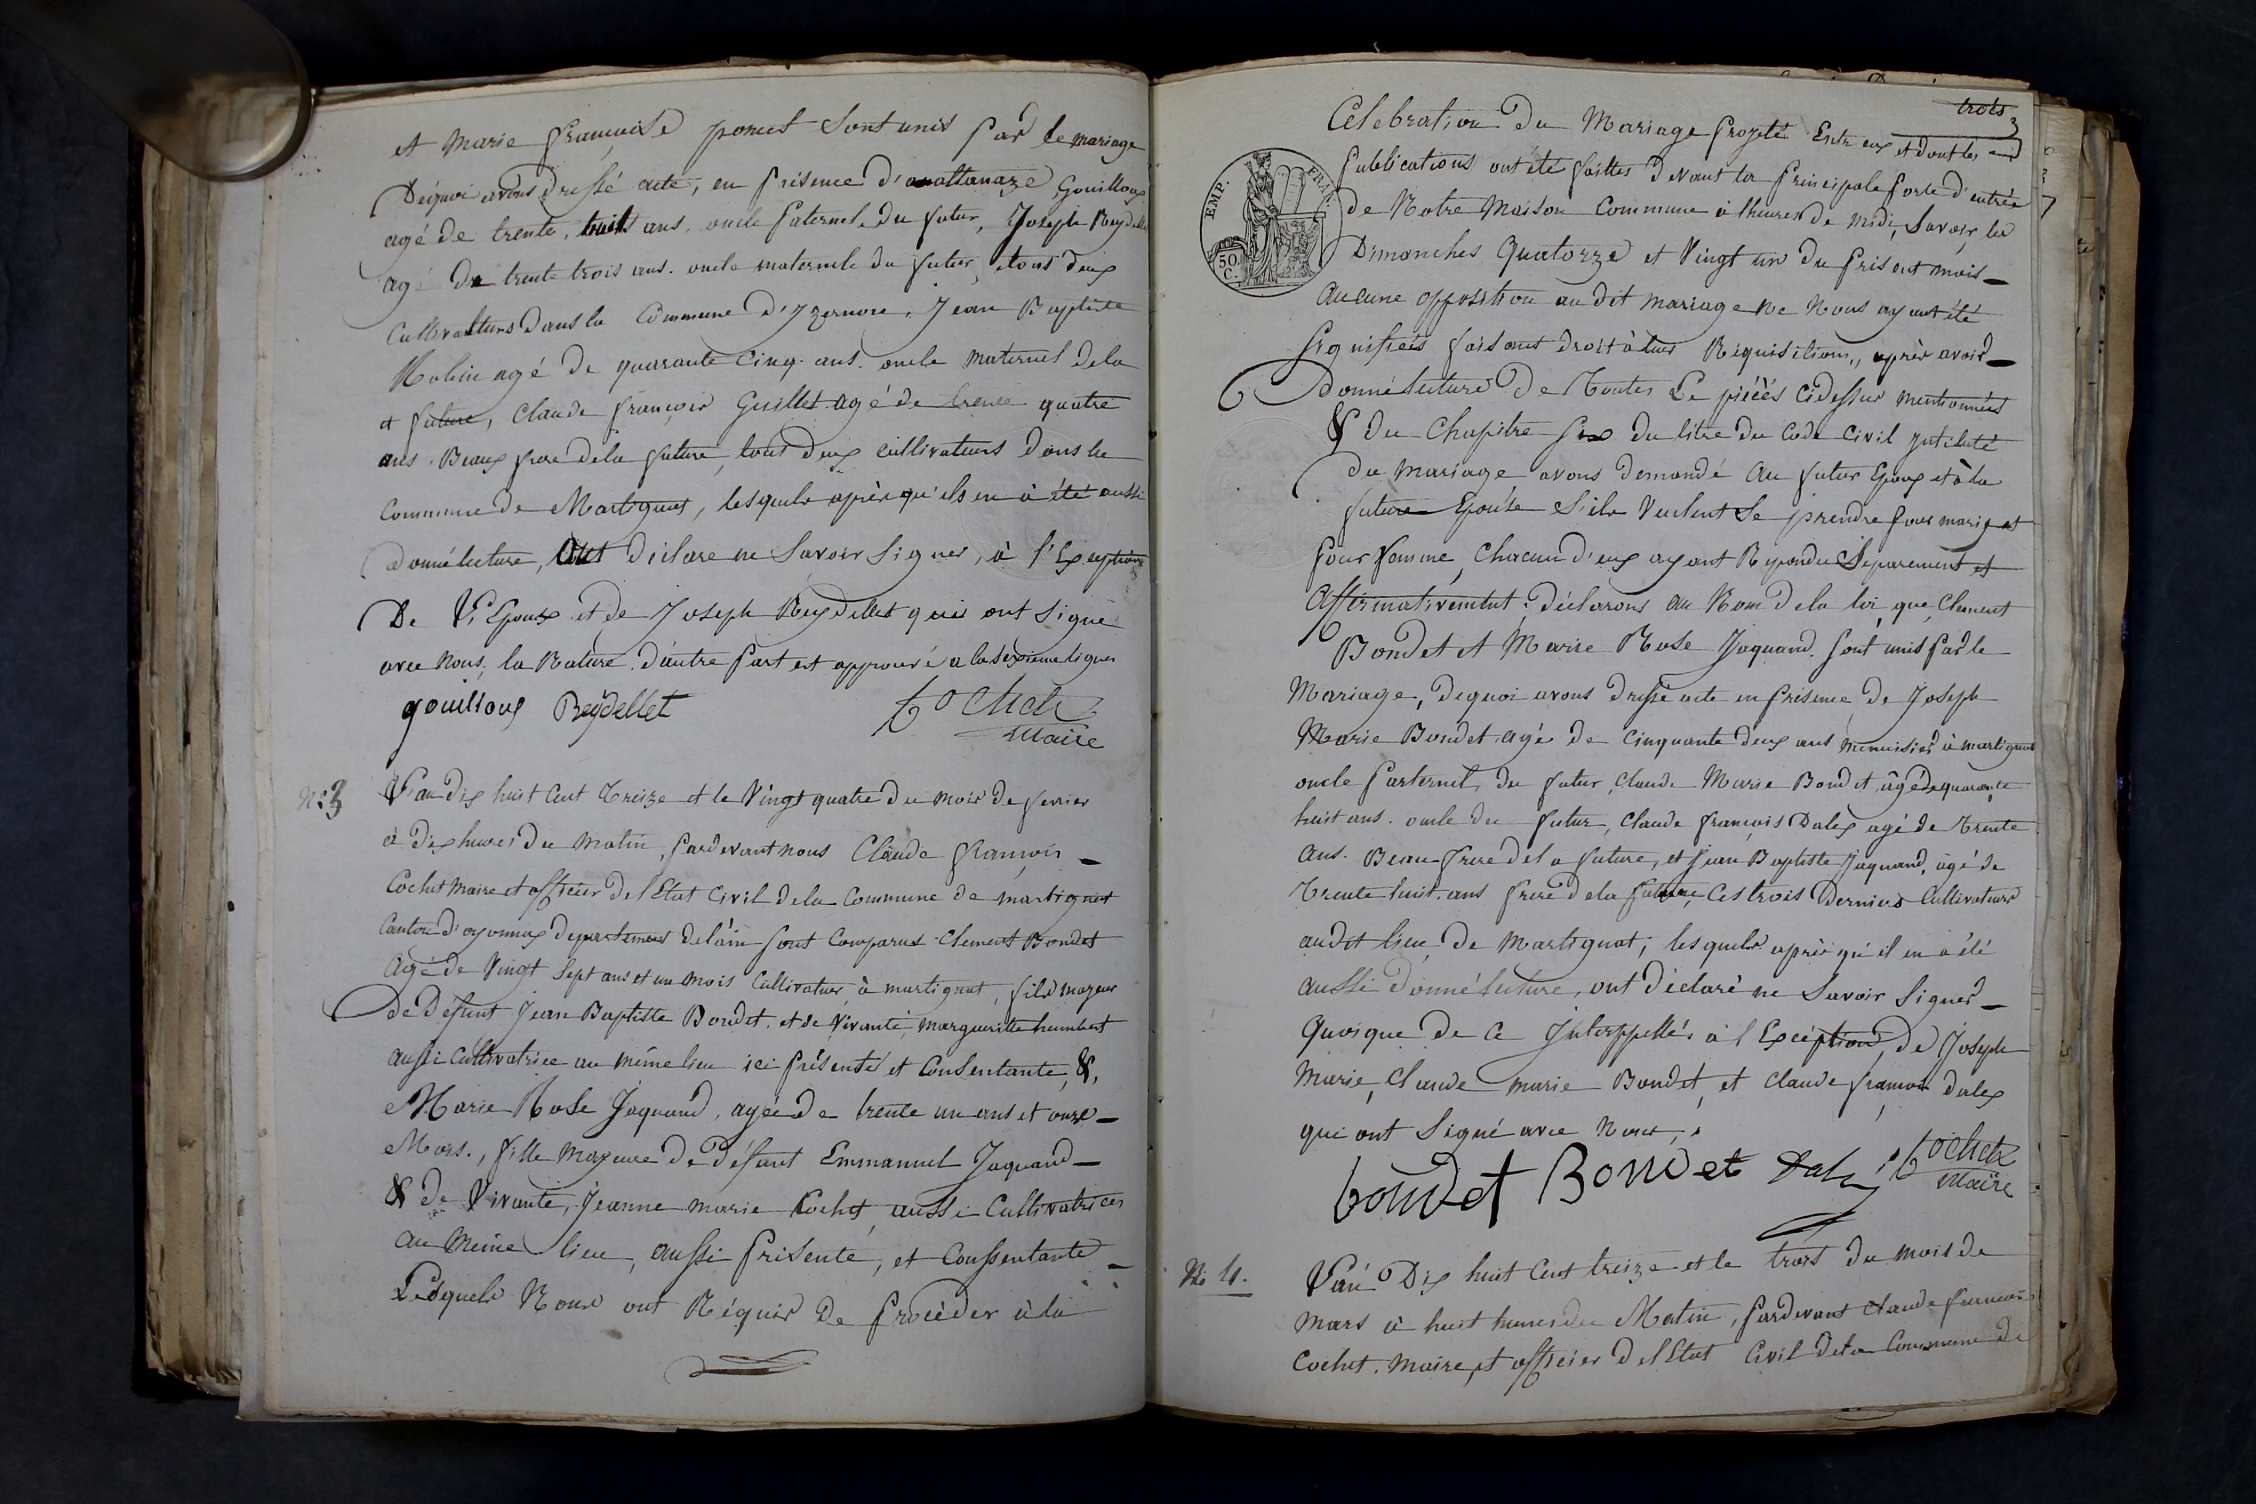 et Marie françoise poncet sont unis par le mariage
Dequoi avons dressé acte, en présence d'anattanaze Gouilloux
agé de trente huit ans, oncle paternel du futur, Joseph Reydellet
agé de trente trois ans. oncle maternele du futur, tous deux
Cultivateurs dans la Commune d'Yzernore, Jean Baptiste
agé de quarante Cinq ans. oncle maternel de la
et future, Claude françois Guillet agé de trente quatre
ans. Beaux frere dela future, tout deux cultivateurs dans la
Commune de Martignat, lesquels après qu'ils en à été aussi
donné lecture, ont déclare ne Savoir Signer, à l'Exception
De l'Epoux et de Joseph Reydellet qui ont Signé
avec nous, la Rature d'autre part est approuvé a la seizieme lignes
gouilloux Reydellet Cochet
Maire
N.º 3
L'an dix huit Cent Treize et le Vingt quatre du mois de fevrier
à dix heures du matin, pardevant nous Claude françois
Cochet Maire et officier de l'Etat Civil dela Commune de martignat
Canton d'oyonnax département delain sont Comparus Clement Bondet
Agé de Vingt Sept ans et un mois Cultivateur à martignat, fils mageur
de Défunt Jean Baptiste Bondet et de Vivante, Margueritte humbert
aussi Cultivatrice au même lieu ici présente et Consentante, &,
Marie Rose Jaquand, agée de trente un ans et onze
Mois., fille Majeure de Défunt Emmanuel Jaquand
& de Vivante, Jeanne marie Cochet, aussi Cultivatrices
au même lieu, aussi présente, et Conssentante
Lesquels Nous ont Réquis de proceder à la
trois
3
Celebration du Mariage projeté Entre eux et dont les
publications ont été faittes devant la principale porte d'entrée
de Notre Maison Commune à lheures de midi, Savoir, les
Dimanches Quatorze et Vingt un du présent mois
EMP. FRAN.
50.
C.
aucune opposition au dit mariage ne Nous ayant été
signifiées faisant droit à leurs Réquisitions, après avoir
donné lecture de Toutes Le piéces cidessus mentionnées
& du Chapitre six du titre du Code Civil intitulé
du mariage avons demandé au futur Epoux et à la
future Epouse S'ils Veulent Se prendre pour mari et
pour femme, Chacun d'eux ayant Repondu Séparement et
affirmativement: déclarons au Nom dela loi, que Clement
Bondet et Marie Rose Jaquand. sont unis par le
Mariage, dequoi avons dressé acte en présence de Joseph
Marie Bondet, agé de Cinquante deux ans menuisier à martignat
oncle parternel du futur, Claude Marie Bondet âgé de quarante
huit ans. oncle du futur, Claude françois Dalex agé de Trente
ans. Beau-frere dela future, et Jean Baptiste Jaquand, agé de
Trente huit ans frere dela future, Ces trois Derniers Cultivateurs
audit lieu, de Martignat; lesquels après qu'il en a été
aussi donné lecture, ont déclaré ne Savoir Signer
Quoique de Ce Interppellés à l'Exception, de Joseph
Marie, Claude marie Bondet, et Claude françois Dalex
qui ont Signé avec Nous,.
bondet Bondet Dalex Cochet
Maire
N.º 4.
L'an Dix huit Cent treize et le trois du mois de
Mars à huit heures du Matin, pardevant Claude françois
Cochet. Maire, et officier de l'Etat Civil dela Commune de